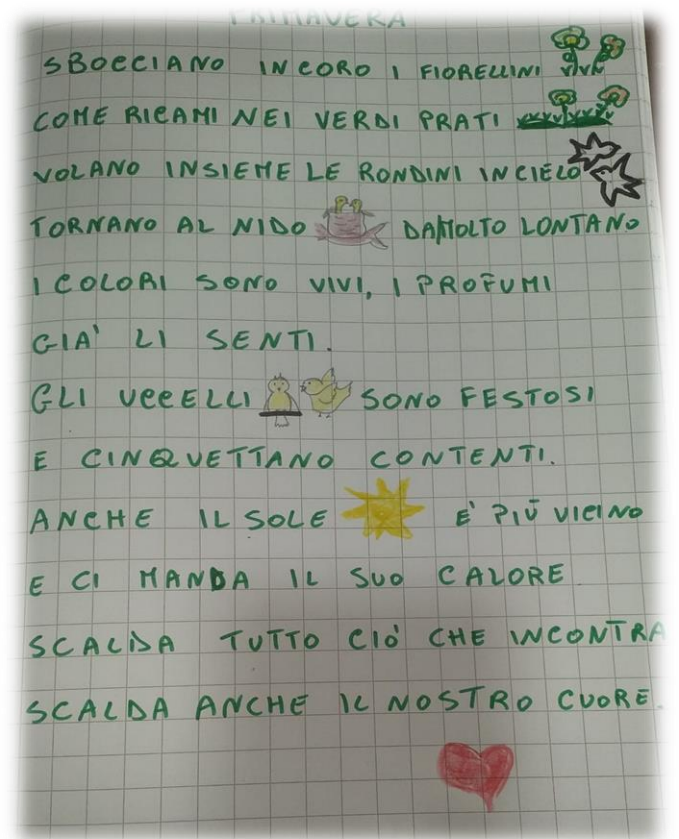 PRIMAVERA
SBOCCIANO IN CORO I FIORELLINI
COME RICAMI NEI VERDI PRATI
VOLANO INSIEME LE RONDINI IN CIELO
TORNANO AL NIDO DA MOLTO LONTANO
I COLORI SONO VIVI, I PROFUMI
GIA' LI SENTI.
GLI UCCELLI SONO FESTOSI
E CINQUETTANO CONTENTI.
ANCHE IL SOLE E' PIÙ VICINO
E CI MANDA IL SUO CALORE
SCALDA TUTTO CIÒ CHE INCONTRA
SCALDA ANCHE IL NOSTRO CUORE.